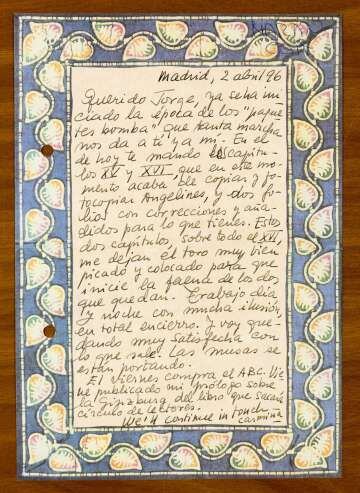 Madrid, 2 abril 96
Querido Jorge, ya se ha ini
ciado la época de los "paque
tes bomba" que tanta marcha
nos da a ti y a mi. En el
de hoy te mando los capítu-
los XV y XVI que en este mo-
mento acaba de copiar y fo-
tocopiar Angelines, y dos fo-
lios con correcciones y aña-
didos para lo que tienes. Estos
dos capítulos, sobre todo el XVI
me dejan el toro muy bien
picado y colocado para que
inicie la faena de los dos
que quedan. Trabajo día
y noche con mucha ilusión,
en total encierro. Y voy que-
dando muy satisfecha con
lo que sale. Las musas se
están portando.
El viernes compra el A.B.C. Vie
ne publicado mi prólogo sobre
la Ginzburg del libro que sacará
círculo de lectores.
We'll continue in touch
Carmiña